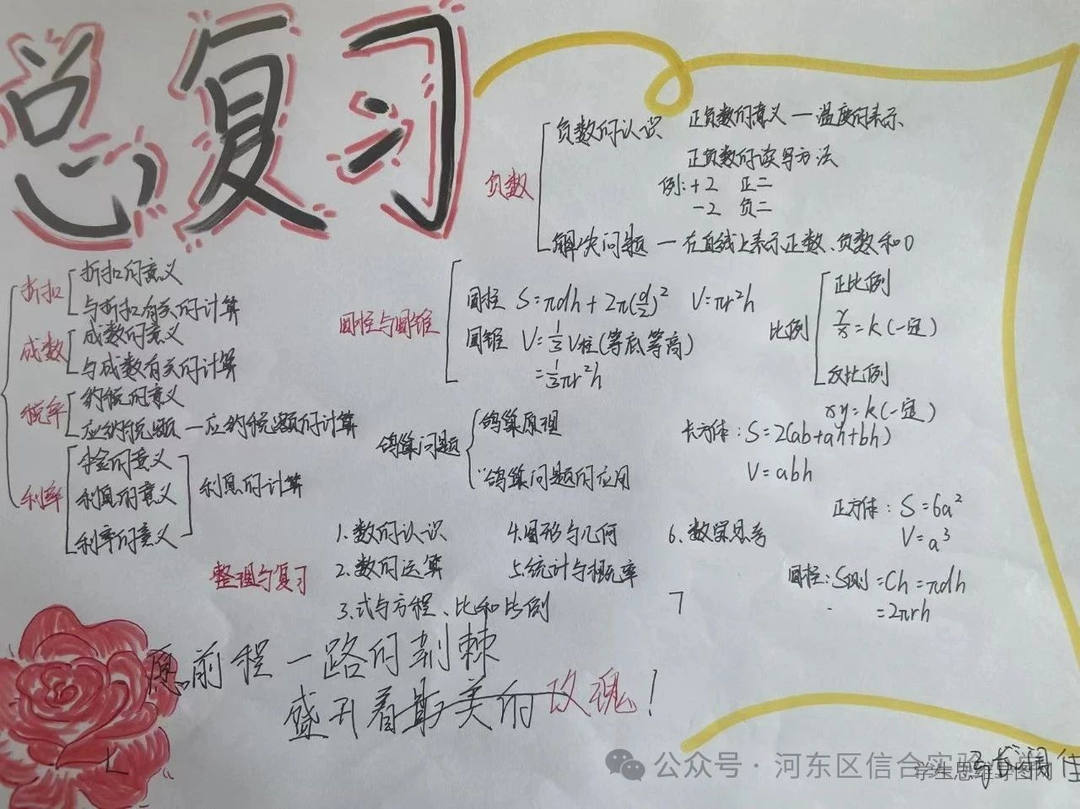 总复习
负数
负数的认识
正负数的意义—温度的表示
正负数的读写方法
例:+2 正二
-2 负二
解决问题—在直线上表示正数、负数和0
折扣
折扣的意义
与折扣有关的计算
成数
成数的意义
与成数有关的计算
税率
纳税的意义
应纳税额—应纳税额的计算
利率
本金的意义
利息的意义
利率的意义
利息的计算
圆柱与圆锥
圆柱 S=πdh+2π(d/2)² V=πr²h
圆锥 V=1/3V柱(等底等高)
=1/3πr²h
比例
正比例
y/x=k(一定)
反比例
xy=k(一定)
鸽巢问题
鸽巢原理
"鸽巢问题的应用
长方体:S=2(ab+ah+bh)
V=abh
正方体:S=6a²
V=a³
圆柱:S侧=Ch=πdh
=2πrh
整理与复习
1.数的认识
2.数的运算
3.式与方程、比和比例
4.图形与几何
5.统计与概率
6.数学思考
7
愿前程一路的荆棘
盛开着最美的玫瑰!
公众号·河东区信合实验
学生思维导图网